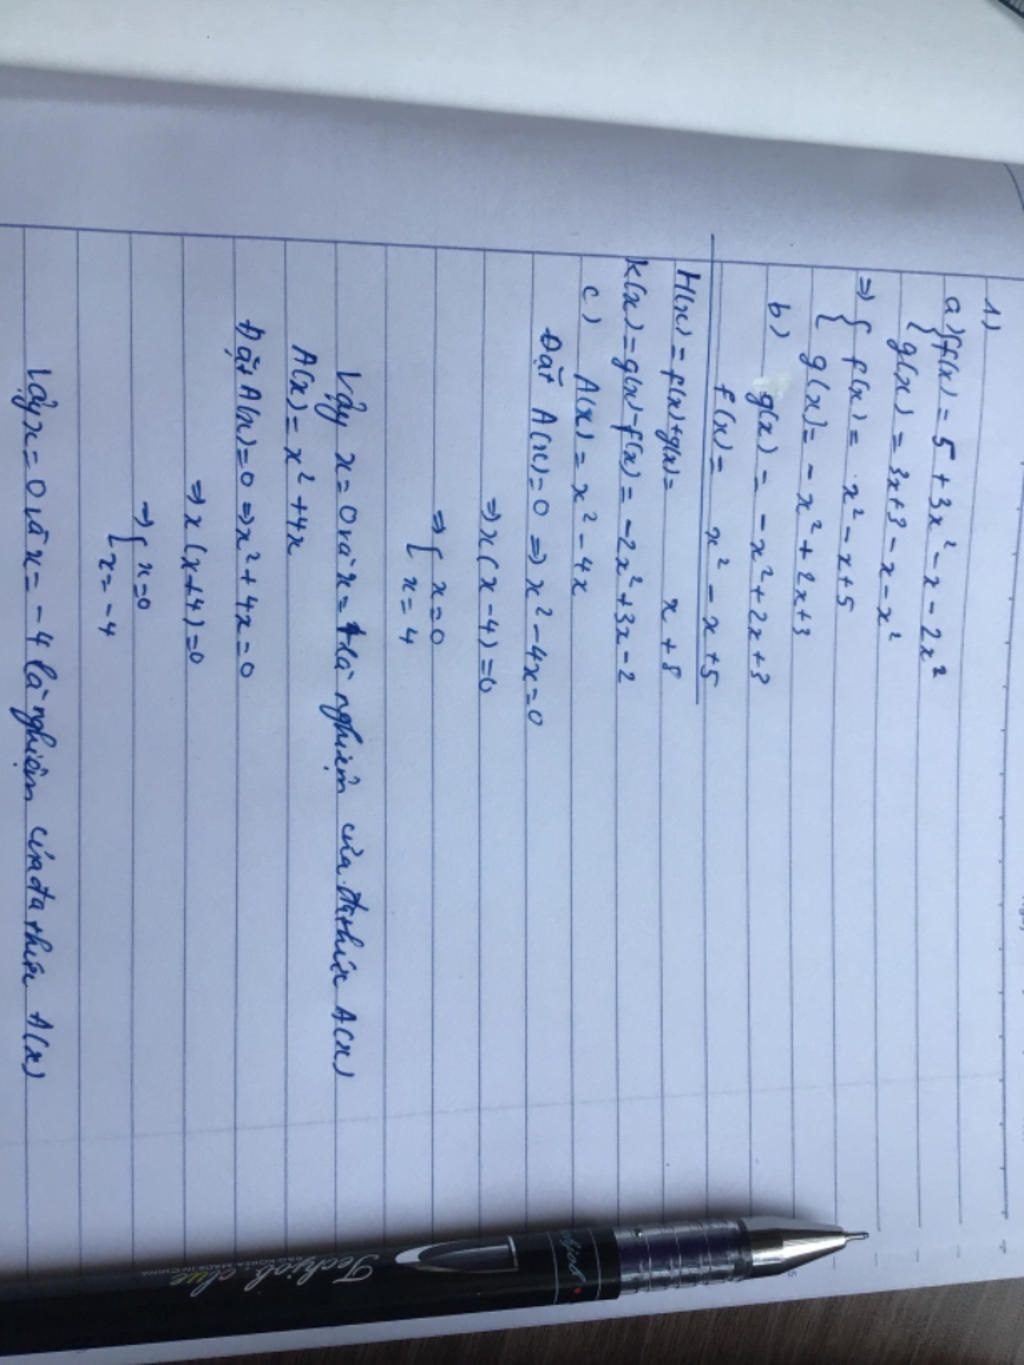 1)
a) { f(x) = 5 + 3x² - x - 2x²
{ g(x) = 3x + 3 - x - x²
=> { f(x) = x² - x + 5
{ g(x) = - x² + 2x + 3
b) g(x) = - x² + 2x + 3
f(x) = x² - x + 5
H(x) = f(x) + g(x) = x + 8
K(x) = g(x) - f(x) = - 2x² + 3x - 2
c) A(x) = x² - 4x
Đặt A(x) = 0 => x² - 4x = 0
=> x (x - 4) = 0
=> { x = 0
{ x = 4
Vậy x = 0 và x = 4 là nghiệm của đa thức A(x)
A(x) = x² + 4x
Đặt A(x) = 0 => x² + 4x = 0
=> x (x + 4) = 0
=> { x = 0
{ x = - 4
Vậy x = 0 và x = - 4 là nghiệm của đa thức A(x)
Techjob
MADE IN CHINA